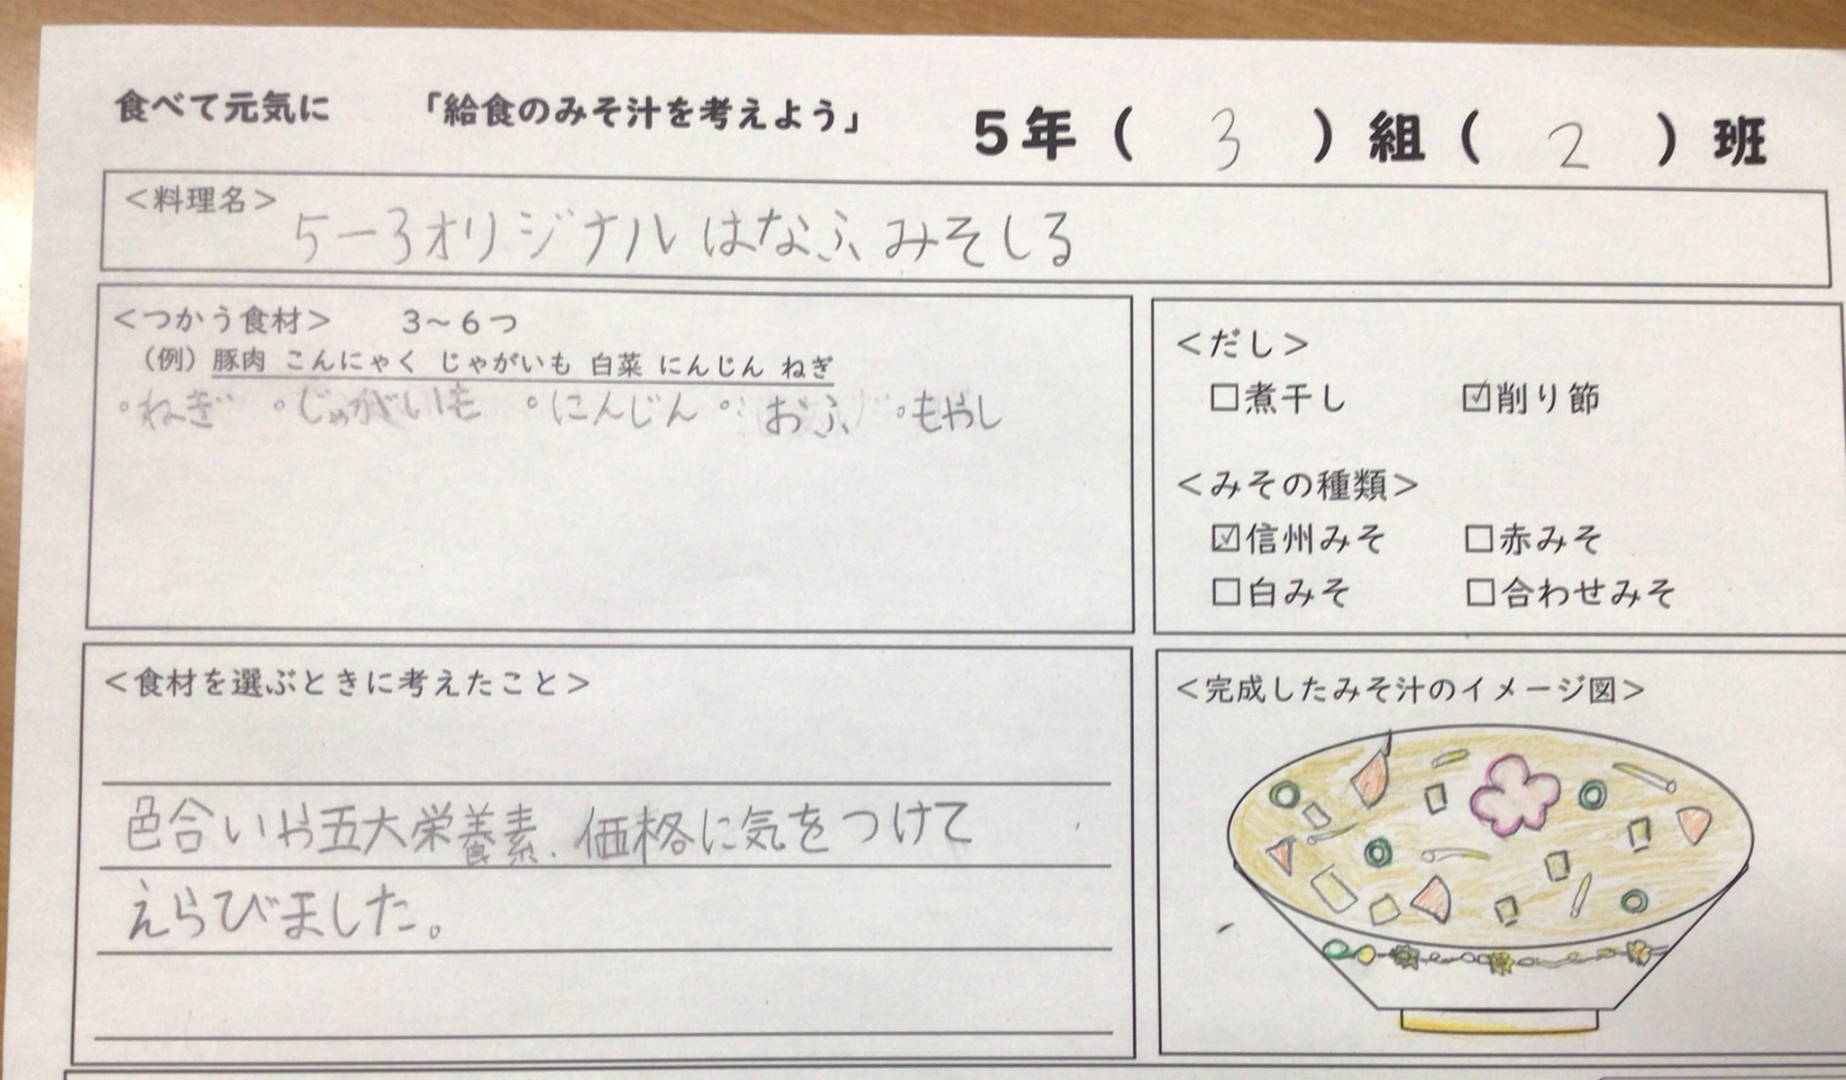 食べて元気に 「給食のみそ汁を考えよう」 5年( 3 )組( 2 )班
<料理名>
5-3オリジナル はなふ みそしる
<つかう食材> 3〜6つ
(例)豚肉 こんにゃく じゃがいも 白菜 にんじん ねぎ
°ねぎ °じゃがいも °にんじん °おふ °もやし
<だし>
□煮干し ☑削り節
<みその種類>
☑信州みそ □赤みそ
□白みそ □合わせみそ
<食材を選ぶときに考えたこと>
色合いや五大栄養素、価格に気をつけて
えらびました。
<完成したみそ汁のイメージ図>